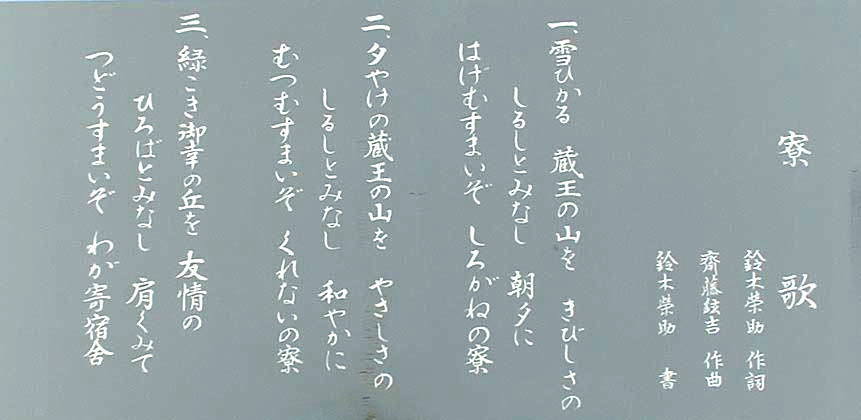 寮歌
鈴木榮助 作詞
齋藤鉉吉 作曲
鈴木榮助 書
一、雪ひかる 蔵王の山を きびしさの
しるしとみなし 朝夕に
はげむすまいぞ しろがねの寮
二、夕やけの蔵王の山を やさしさの
しるしとみなし 和やかに
むつむすまいぞ くれないの寮
三、緑こき御幸の丘を 友情の
ひろばとみなし 肩くみて
つどうすまいぞ わが寄宿舎